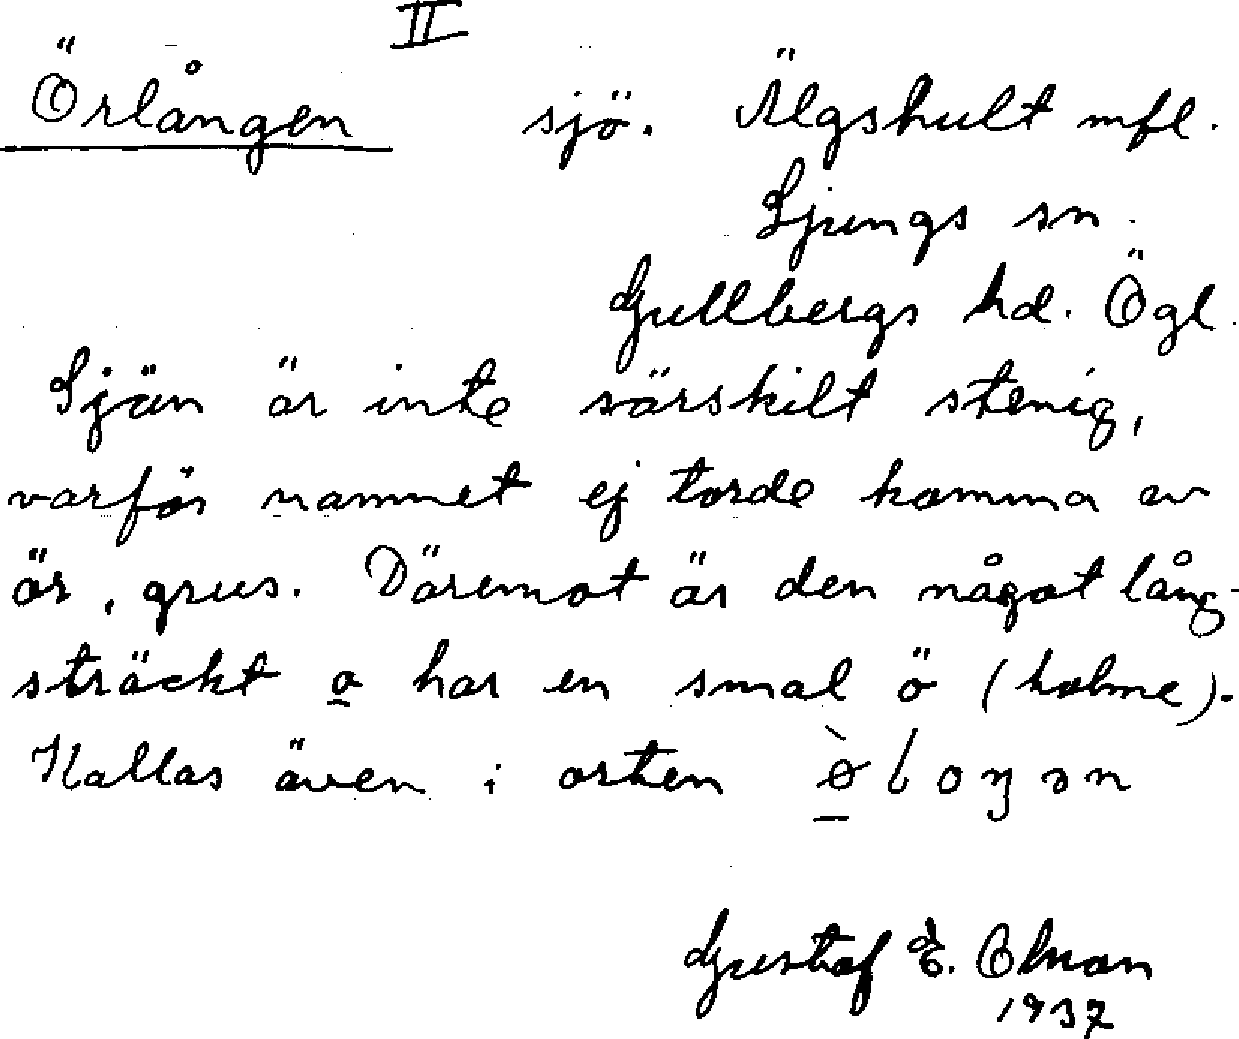 II
Örlången sjö. Älgshult mfl.
Ljungs sn.
Gullbergs hd. Ögl.
Sjön är inte särskilt stenig,
varför namnet ej torde komma av
ör, grus. Däremot är den något lång-
sträckt o har en smal ö (holme).
Kallas även i orten
Gustaf E. 
1937